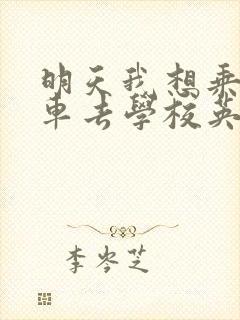 明天我想乘
車去學校英
李岑芝